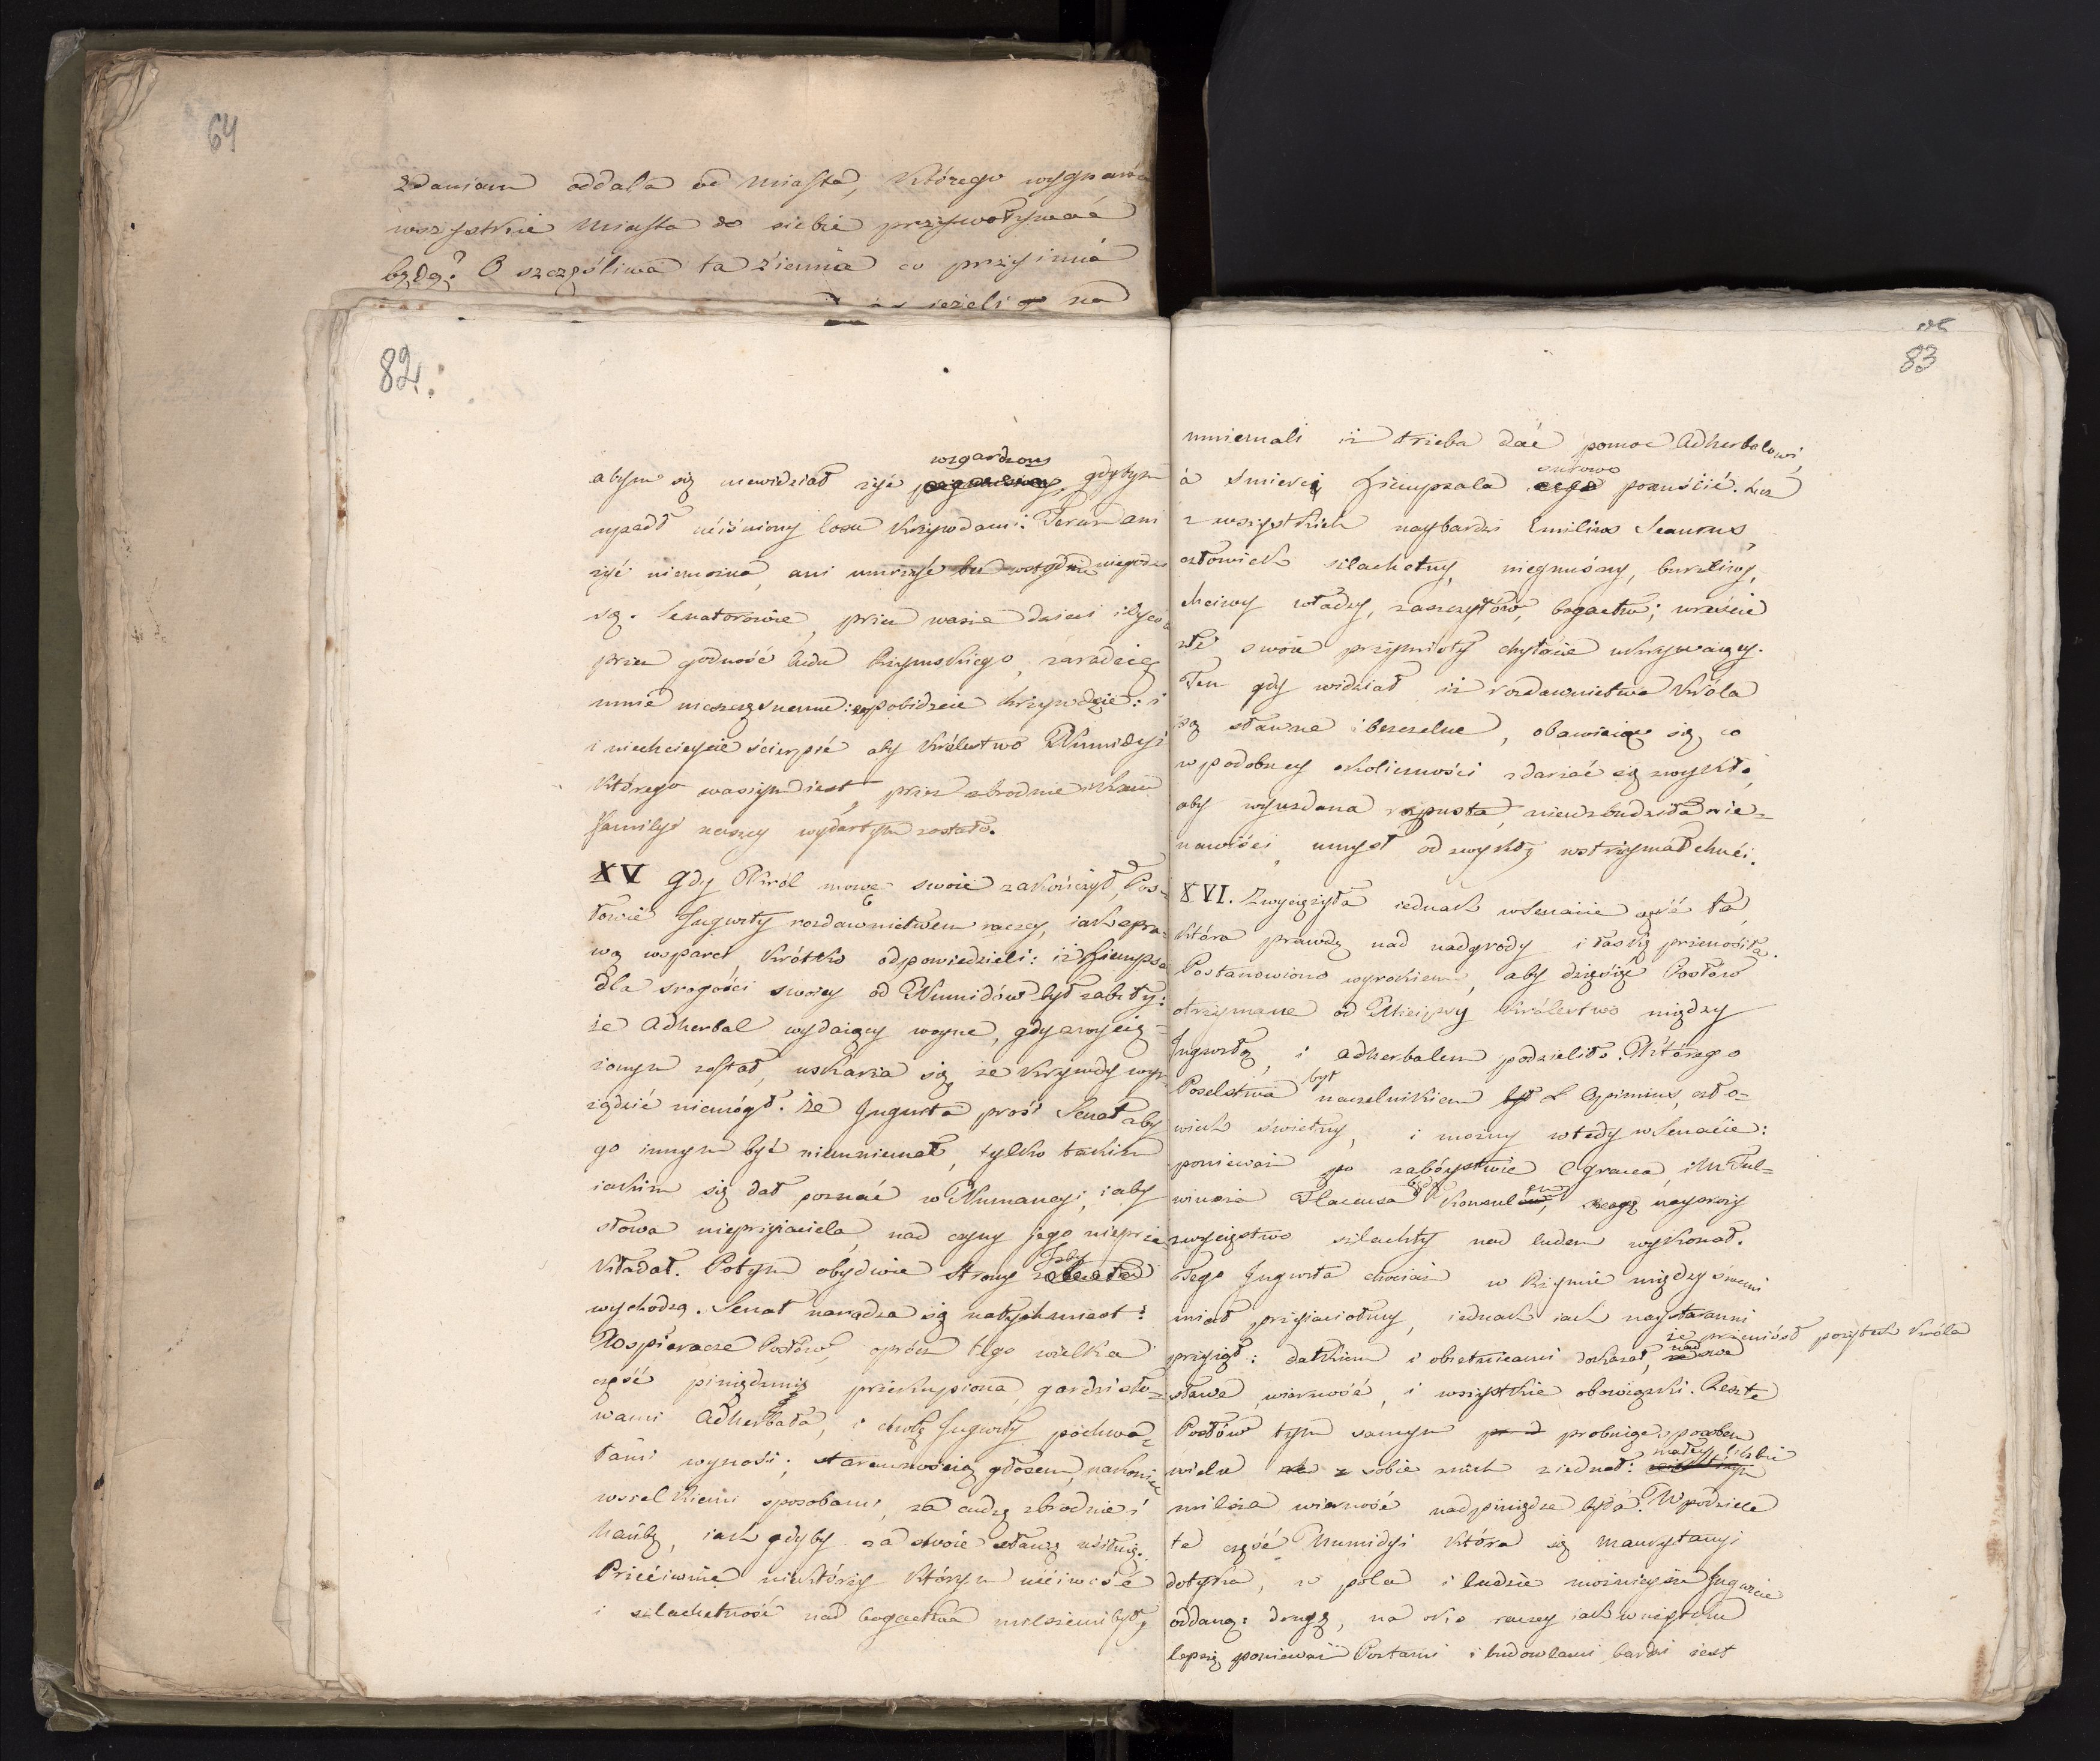 64
zdaniem oddala od Miasta, którego wygnańca
wszystkie Miasta do siebie przywoływać
będą? O szczęśliwa ta ziemia co przyimie
ieżeli na
82.
wzgardzony
abym się niewidział żyć gdybym
upadł uciśniony losu krzywdami. Teraz ani
żyć niemożna, ani umrzeć bez wstydu niegodzi
się. Senatorowie, przez wasze dzieci i Oyców
przez godność ludu Rzymskiego, zaradźcie
mnie nieszczęsnemu: zapobiżcie krzywdzie: i
i niechcieycie ścierpić aby królestwo Numidyi
którego waszym iest, przez zbrodnie i krew
familyi naszey wydartym zostało.
XV Gdy Król mowę swoie zakończył, Pos-
łowie Jugurty rozdawnictwem raczey, iak spra-
wą wsparci krótko odpowiedzieli: iż Hiempsal
dla srogości swoiey od Numidów był zabity:
że Adherbal wydaiący woynę, gdy zwycię-
żonym został, uskarża się że krzywdy wyr-
ządzić niemógł. że Jugurta prosi Senat aby
go innym być niemniemał, tylko takim
iakim się dał poznać w Numancyi; i aby
słowa nieprzyiaciela, nad czyny jego nieprze
kładał. Potym obydwie Strony z Izby
wychodzą. Senat naradza się natychmiast:
Wspieracze Posłów, oprócz tego wielka
część pieniędzmi przekupiona, gardzi sło-
wami Adherbala, i cnotę Jugurty pochwa-
łami wynosi; starannością, głosem, nakoniec
wszelkiemi sposobami, za cudzą zbrodnie i
hańbę, iak gdyby za swoie sławę usiłuią.
Przeciwnie niektórzy którym uściwość
i szlachetność nad bogactwa milszemi były
83
mniemali iż trzeba dać pomoc Adherbalowi,
surowo
à śmierci Hiempsala pomścić. Lecz
z wszystkich naybardzi Emilius Scaurus,
człowiek szlachetny, niegnuśny, burzliwy,
chciwy władzy, zaszczytów, bogactw; wreście
złe swoie przymioty chytrze ukrywaiący.
Ten gdy widział iż rozdawnictwa króla
są sławne i bezczelne, obawiaiąc się, co
w podobney okoliczności zdarzać się zwykło,
aby wyuzdana rozpusta, niewzbudziła nie-
nawiści, umysł od zwykłey wstrzymał chuci.
XVI. Zwyciężyła iednak w Senacie część ta
która prawdę nad nadgrody i łaskę przenosiła.
Postanowiono wyrokiem, aby dziesięć Posłów
otrzymane od Micipsy królestwo między
Jugurtę, i Adherbalem podzieliło. Którego
Poselstwa był naczelnikiem był L Opimius, czło-
wiek świetny, i możny wtedy w Senacie:
ponieważ po zabóystwie C gracca, i M Ful-
winsza Flaccusa będąc Konsulem, naysroży
zwycięstwo szlachty nad ludem wykonał.
Tego Jugurta chociaż w Rzymie między swemi
miał przyiaciołmy, iednak iak naystaranni
przyiął: datkiem i obietnicami dokazał, że przeniósł pożytek króla
nad swe
sławę, wiarność, i wszystkie obowiązki. Resztę
Posłów tym samym probuiąc sposobem
wielu z sobie znich ziednał: małey liczbie
milsza wiarność nad pieniądze była. W podziele
ta część Numidyi która się Mauretanyi
dotyka, w pola i ludzie możnieysza Jugurcie
oddaną: drugą, na oko raczey iak w użytku
lepszą ponieważ Portami i budowlami bardzi iest